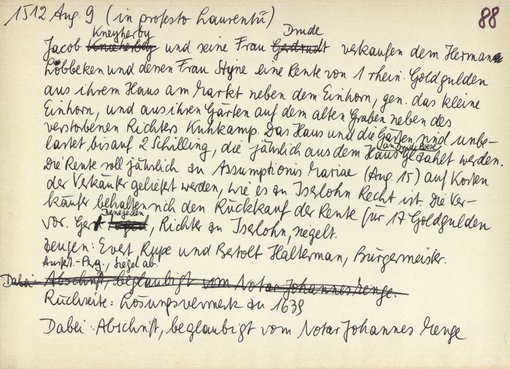 1512 Aug. 9 (in profesto Laurentii) 88
Kneyherby Drude
Jacob Kneiherby und seine Frau Gedrudt verkaufen dem Hermann
Löbbeken und deren Frau Styne eine Rente von 1 rhein. Goldgulden
aus ihrem Haus am Markt neben dem Einhorn, gen. das kleine
Einhorn, und aus ihren Gärten auf dem alten Graben neben des
verstorbenen Richters Kuhkamp. Das Haus und die Gärten sind unbe-
lastet bis auf 2 Schilling, die jährlich aus dem Haus gezahlt werden.
Die Rente soll jährlich zu Assumptionis Mariae (Aug. 15) auf Kosten
der Verkäufer geliefert werden, wie es zu Iserlohn Recht ist. Die Ver-
käufer behalten sich den Rückkauf der Rente für 17 Goldgulden
vor. Gert, Richter zu Iserlohn, siegelt.
Zeugen: Evert Rype und Bertolt Halterman, Bürgermeister.
Ausf.-Perg., Siegel ab.
Dabei: Abschrift, beglaubigt vom Notar Johannes Menge.
Rückseite: Lösungsvermerk zu 1639
Dabei: Abschrift, beglaubigt vom Notar Johannes Menge